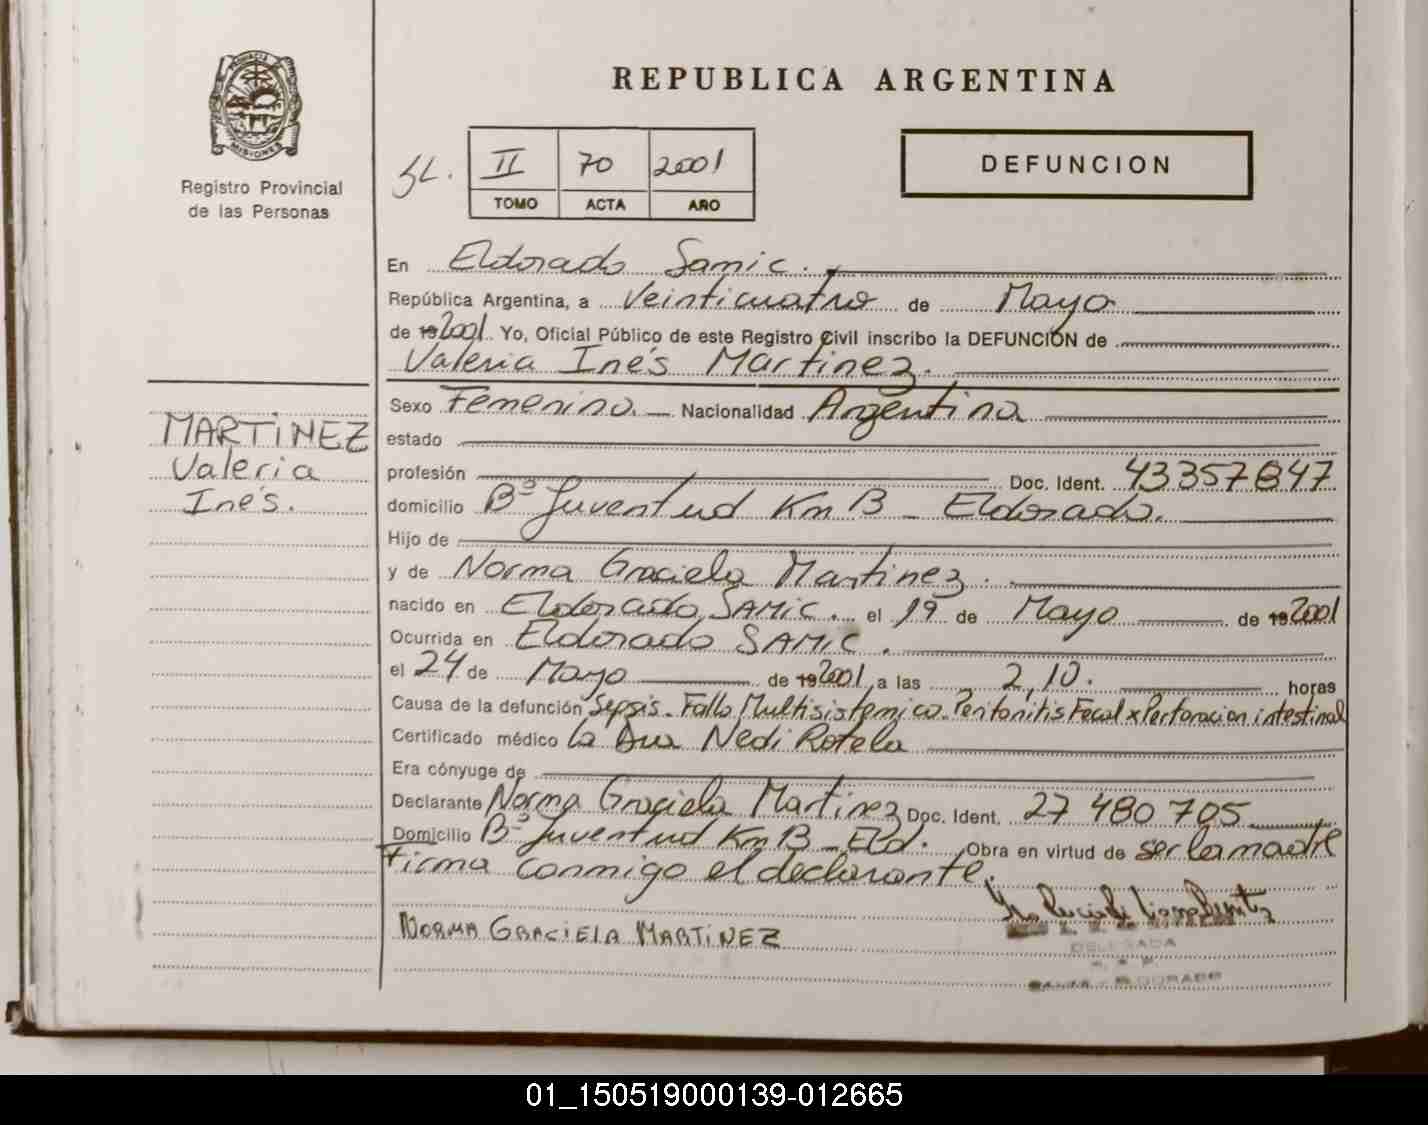 PROVINCIA DE
MISIONES
Registro Provincial
de las Personas
MARTINEZ
Valeria
Inés.
REPUBLICA ARGENTINA
II 70 2001
TOMO ACTA AÑO
DEFUNCION
En Eldorado Samic.
República Argentina, a Veinticuatro de Mayo
de 19 2001. Yo, Oficial Público de este Registro Civil inscribo la DEFUNCIÓN de
Valeria Inés Martinez.
Sexo Femenino. Nacionalidad Argentina
estado
profesión Doc. Ident. 43357847
domicilio B° Juventud Km B - Eldorado.
Hijo de
y de Norma Graciela Martinez.
nacido en Eldorado, SAMIC. el 19 de Mayo de 19 2001
Ocurrida en Eldorado SAMIC.
el 24 de Mayo de 19 2001, a las 2,10. horas
Causa de la defunción Sepsis. Fallo Multisistemico. Peritonitis Fecal x Perforacion intestinal
Certificado médico la Dra Nedi Rotela
Era cónyuge de
Declarante Norma Graciela Martinez Doc. Ident. 27 480 705
Domicilio B° Juventud Km B - Eld. Obra en virtud de ser la madre
Firma conmigo el declarante.
NORMA GRACIELA MARTINEZ
DELEGADA
ELDORADO
01_150519000139-012665